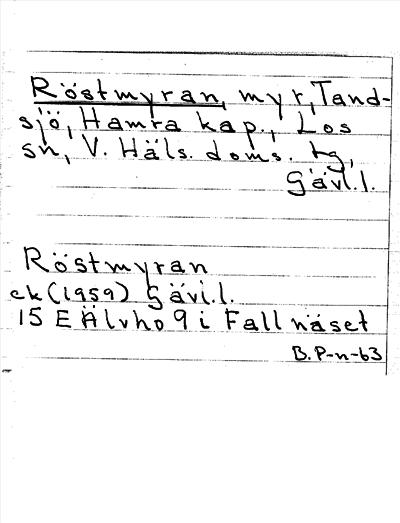 Röstmyran, myr, Tand-
sjö, Hamra kap., Los
sn, V. Häls. doms. tg,
Gävl.l.
Röstmyran
ek (1959) Gävl.l.
15 E Älvho 9 i Fallnäset
B.P-n-63